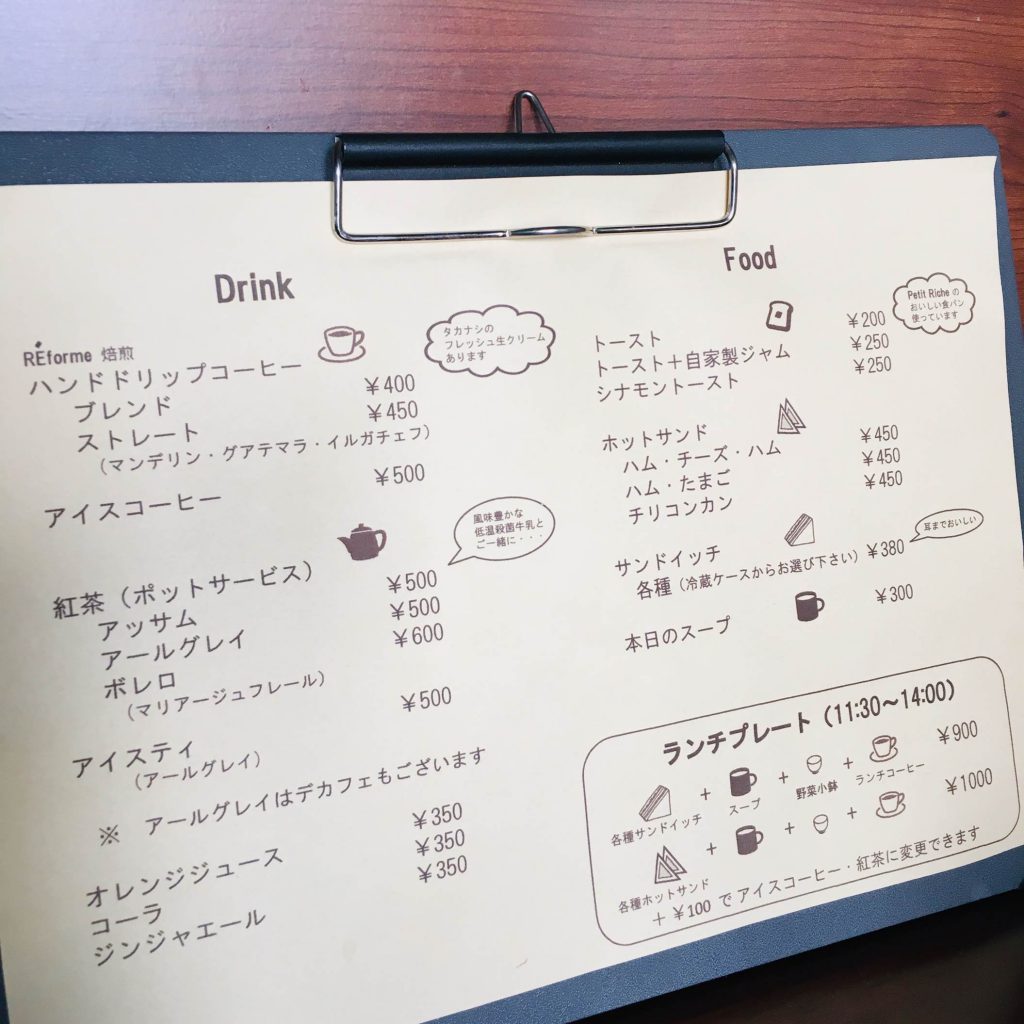 Drink
RÉforme 焙煎
ハンドドリップコーヒー
タカナシの
フレッシュ生クリーム
あります
ブレンド ¥400
ストレート ¥450
(マンデリン・グアテマラ・イルガチェフ)
アイスコーヒー ¥500
風味豊かな
低温殺菌牛乳と
ご一緒に・・・
紅茶(ポットサービス)
アッサム ¥500
アールグレイ ¥500
ボレロ ¥600
(マリアージュフレール)
アイスティ ¥500
(アールグレイ)
※ アールグレイはデカフェもございます
オレンジジュース ¥350
コーラ ¥350
ジンジャエール ¥350
Food
Petit Riche の
おいしい食パン
使っています
トースト ¥200
トースト+自家製ジャム ¥250
シナモントースト ¥250
ホットサンド
ハム・チーズ・ハム ¥450
ハム・たまご ¥450
チリコンカン ¥450
サンドイッチ
耳までおいしい
各種(冷蔵ケースからお選び下さい) ¥380
本日のスープ ¥300
ランチプレート(11:30~14:00)
+ + + ¥900
各種サンドイッチ スープ 野菜小鉢 ランチコーヒー
+ + + ¥1000
各種ホットサンド
+¥100 でアイスコーヒー・紅茶に変更できます